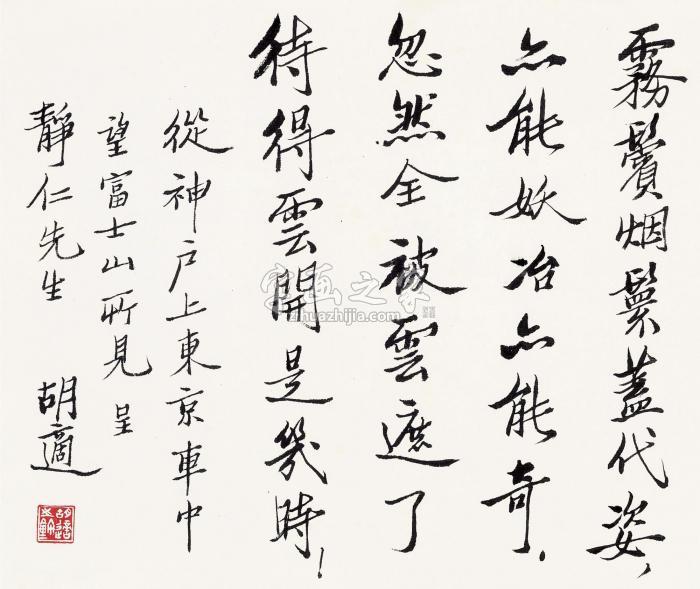 霧鬢烟鬟蓋代姿，
亦能妖冶亦能奇．
忽然全被雲遮了
待得雲開是幾時！
從神户上東京車中
望富士山所見 呈
靜仁先生 胡適
字画之家
zihuazhijia.com